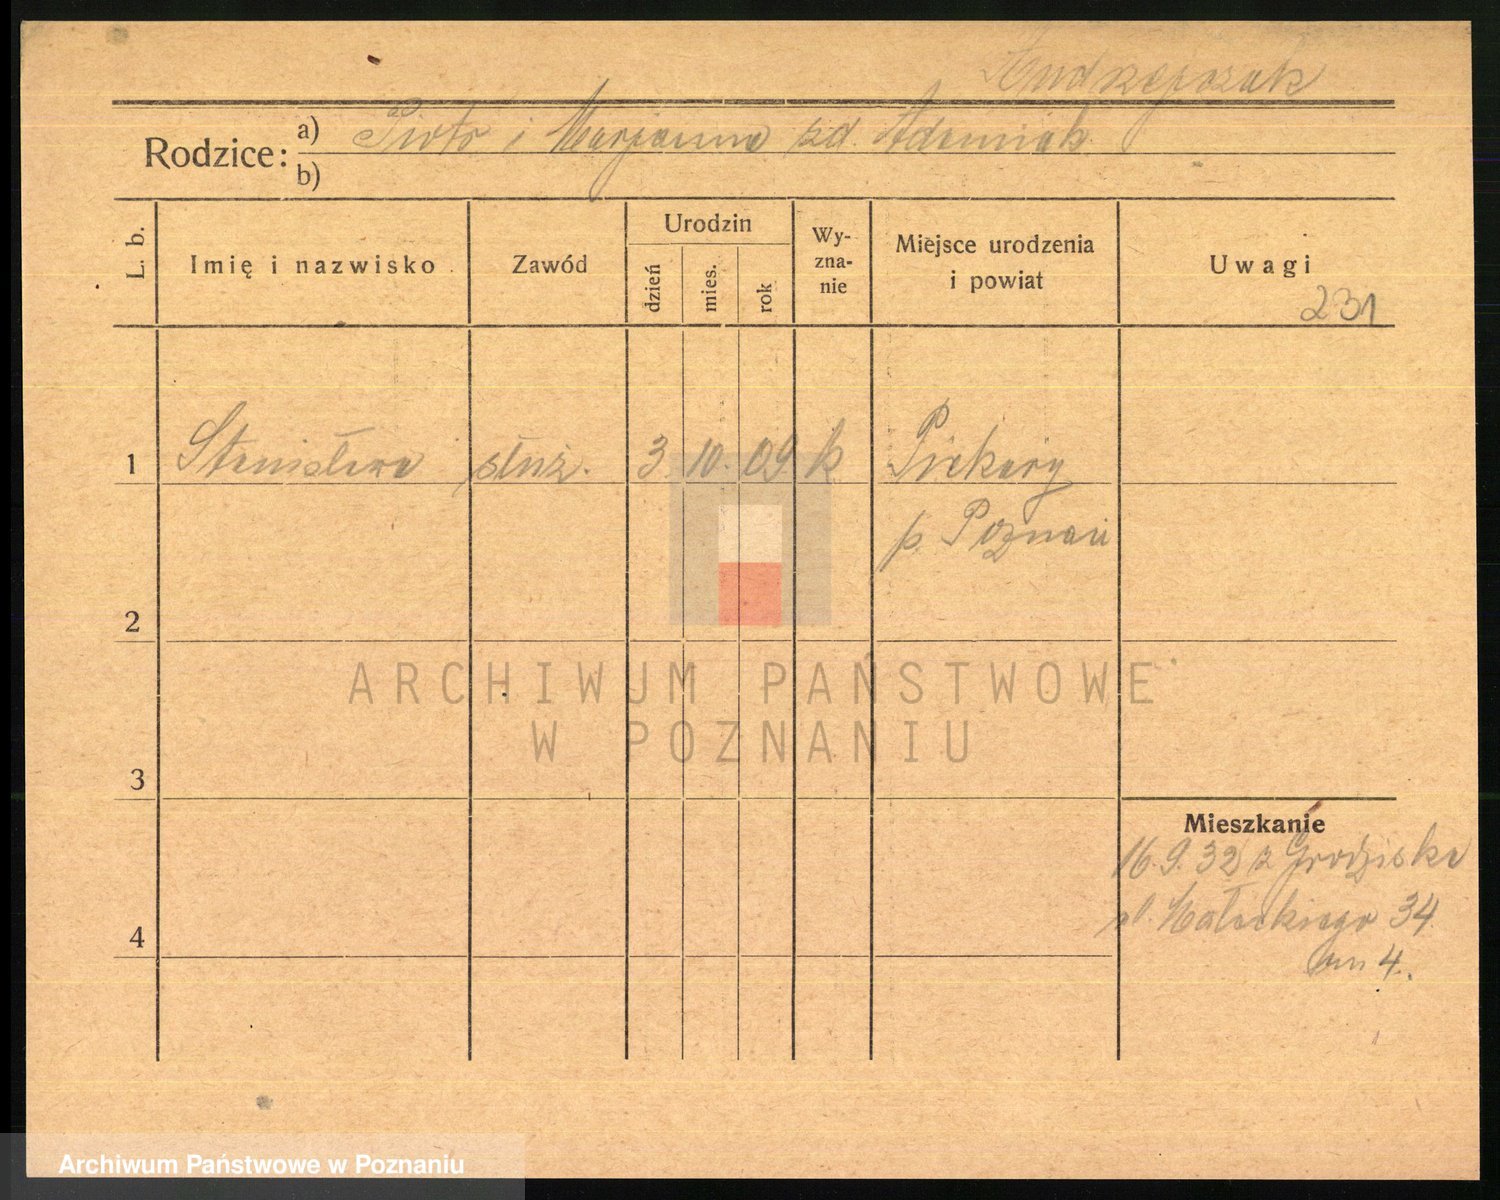 Andrzejczak
Rodzice: a) Piotr i Marjanna zd. Adamiak
b)
L. b.
Imię i nazwisko
Zawód
Urodzin
dzień
mies.
rok
Wy-
zna-
nie
Miejsce urodzenia
i powiat
Uwagi
231
1 Stanisława służ. 3. 10. 09. k Piekary
p. Poznań
2
3
4
Mieszkanie
16.9.32 z Grodziska
ul. Małeckiego 34
m 4.
ARCHIWUM PAŃSTWOWE
W POZNANIU
Archiwum Państwowe w Poznaniu